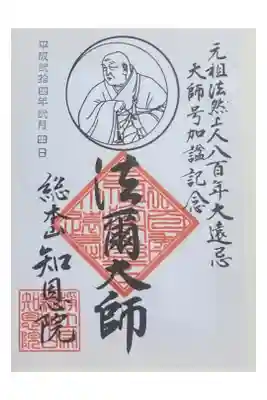 元祖法然上人八百年大遠忌
大師号加諡記念
法爾大師
平成弐拾四年弐月日
総本山知恩院